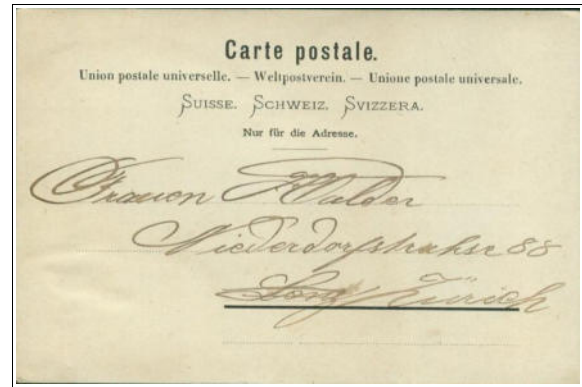 Carte postale.
Union postale universelle. — Weltpostverein. — Unione postale universale.
SUISSE. SCHWEIZ. SVIZZERA.
Nur für die Adresse.
Frauen Walder
Niederdorfstrahse 88
Zürich